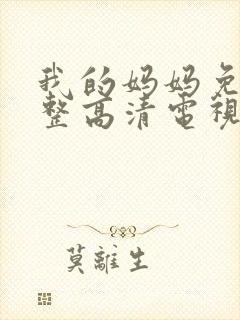 我的妈妈免
整高清電視
莫離生